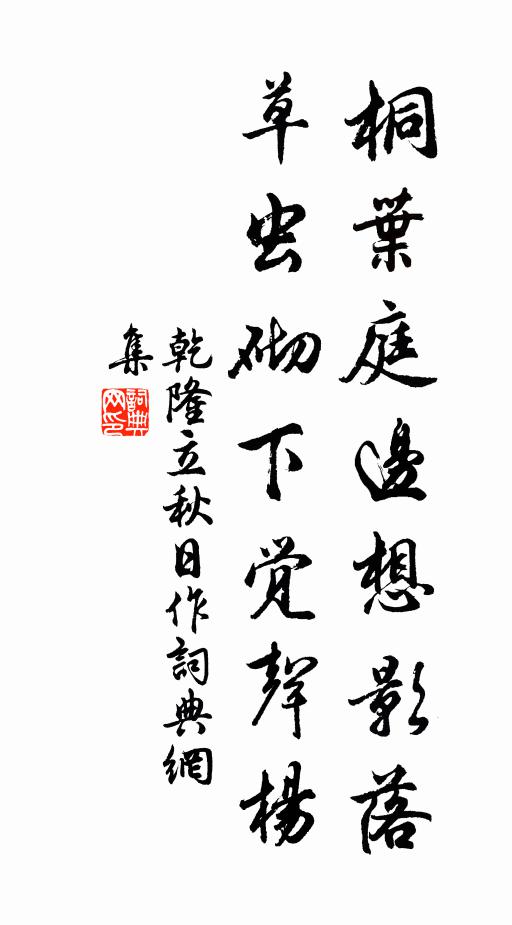 桐葉庭邊想影落
草虫砌下覚聲楊
乾隆立秋日作詞典網
集
詞典
网印